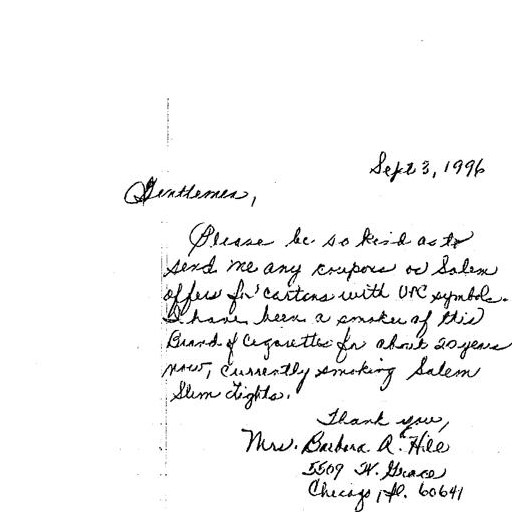 Sept 3, 1996
Gentlemen,
Please be so kind as to
send me any coupons or Salem
offers for cartons with UPC symbols.
I have been a smoker of this
Brand of Cigarettes for about 20 years
now, Currently smoking Salem
Slim Lights.
Thank you,
Mrs. Barbara A. Hill
5509 W. Grace
Chicago, Il. 60641